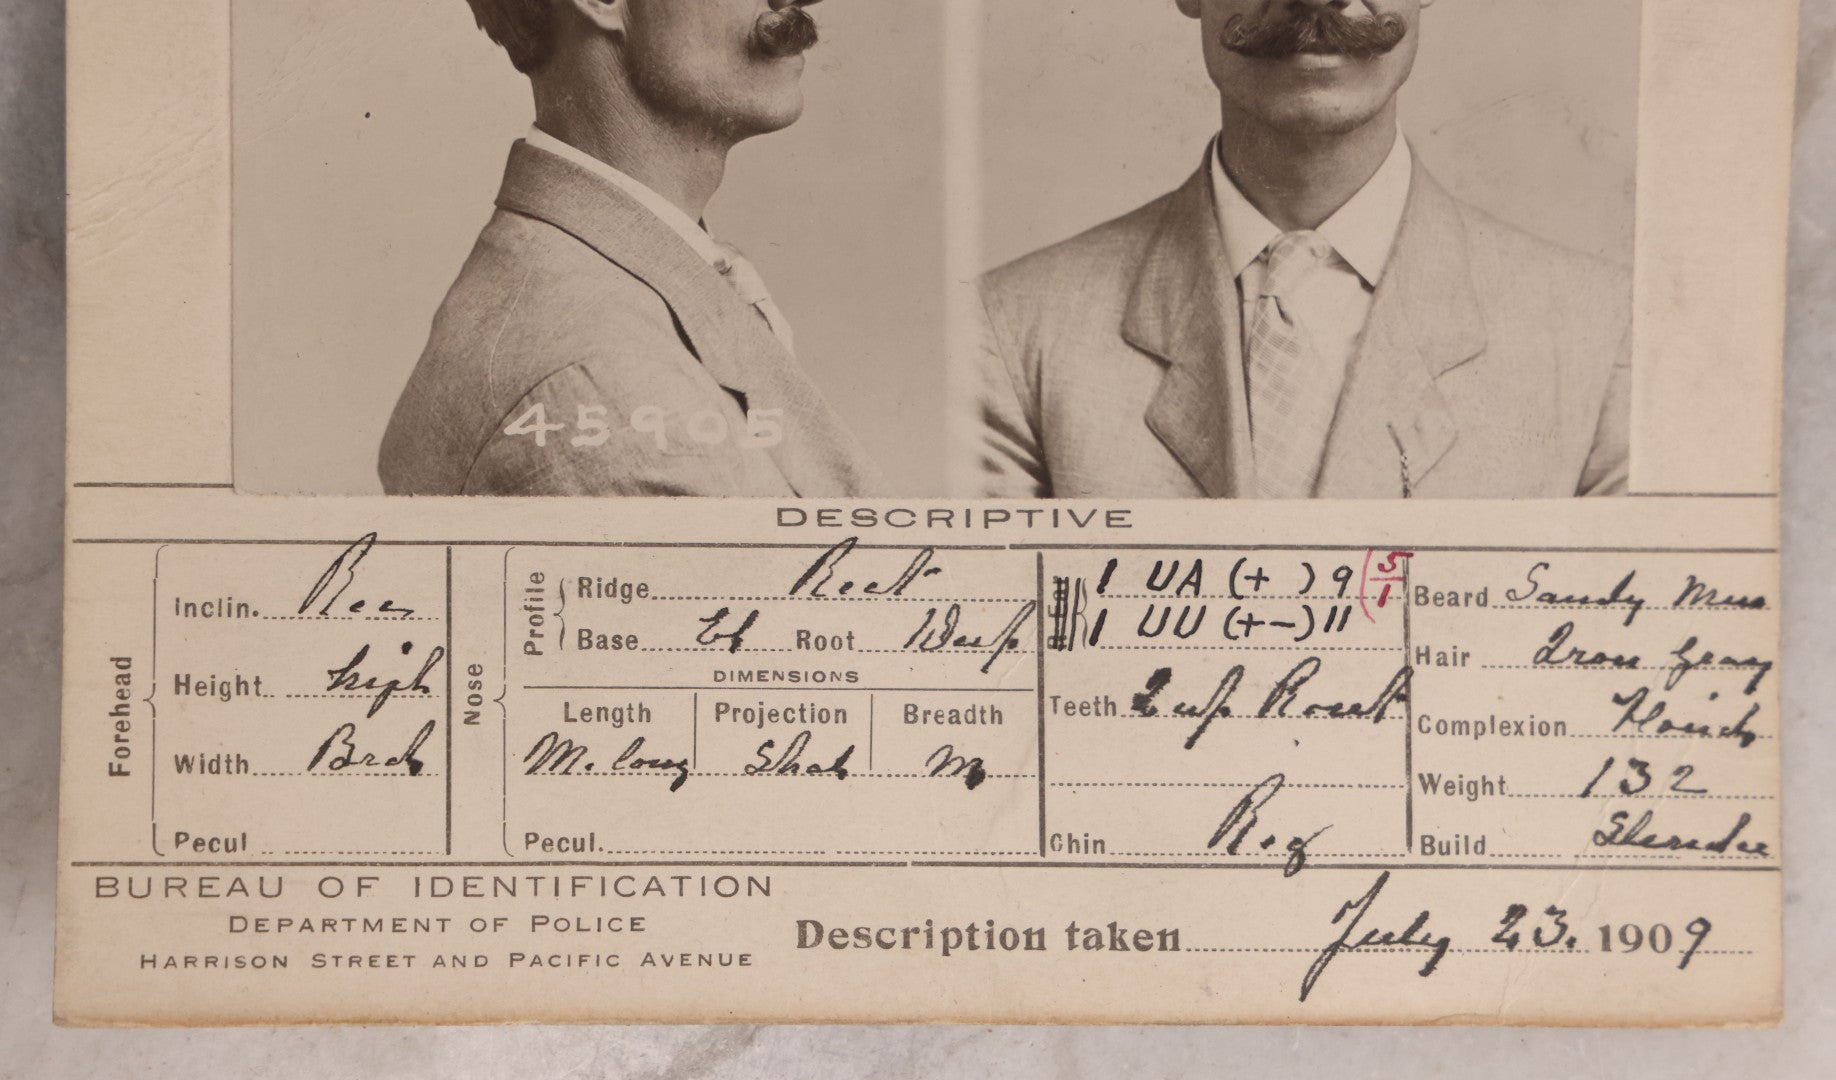 45905
DESCRIPTIVE
Forehead
Inclin. Rec
Height high
Width Brd
Pecul
Nose
Profile
Ridge Rect
Base El Root Deep
DIMENSIONS
Length Projection Breadth
M. long Shal M
Pecul.
1 UA (+ ) 9 5/1
1 UU (+-) 11
Teeth
Chin Reg
Beard Sandy Mus
Hair Iron Gray
Complexion Florid
Weight 132
Build Slender
BUREAU OF IDENTIFICATION
DEPARTMENT OF POLICE
HARRISON STREET AND PACIFIC AVENUE
Description taken July 23. 1909